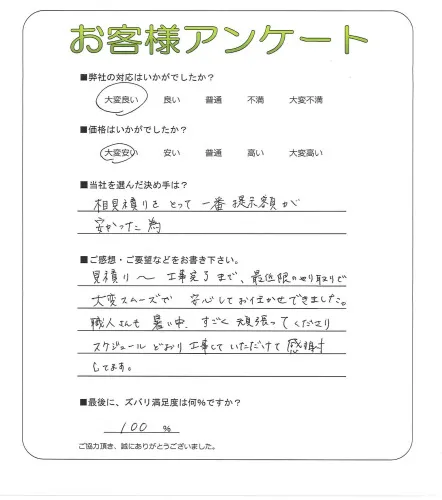 お客様アンケート
■弊社の対応はいかがでしたか?
大変良い 良い 普通 不満 大変不満
■価格はいかがでしたか?
大変安い 安い 普通 高い 大変高い
■当社を選んだ決め手は?
相見積りをとって一番提示額が
安かった為
■ご感想・ご要望などをお書き下さい。
見積り〜工事完了まで、最低限のやり取りで
大変スムーズで 安心しておまかせできました。
職人さんも暑い中、すごく頑張ってくださり
スケジュールどおり工事していただけて感謝
してます。
■最後に、ズバリ満足度は何%ですか?
100 %
ご協力頂き、誠にありがとうございました。